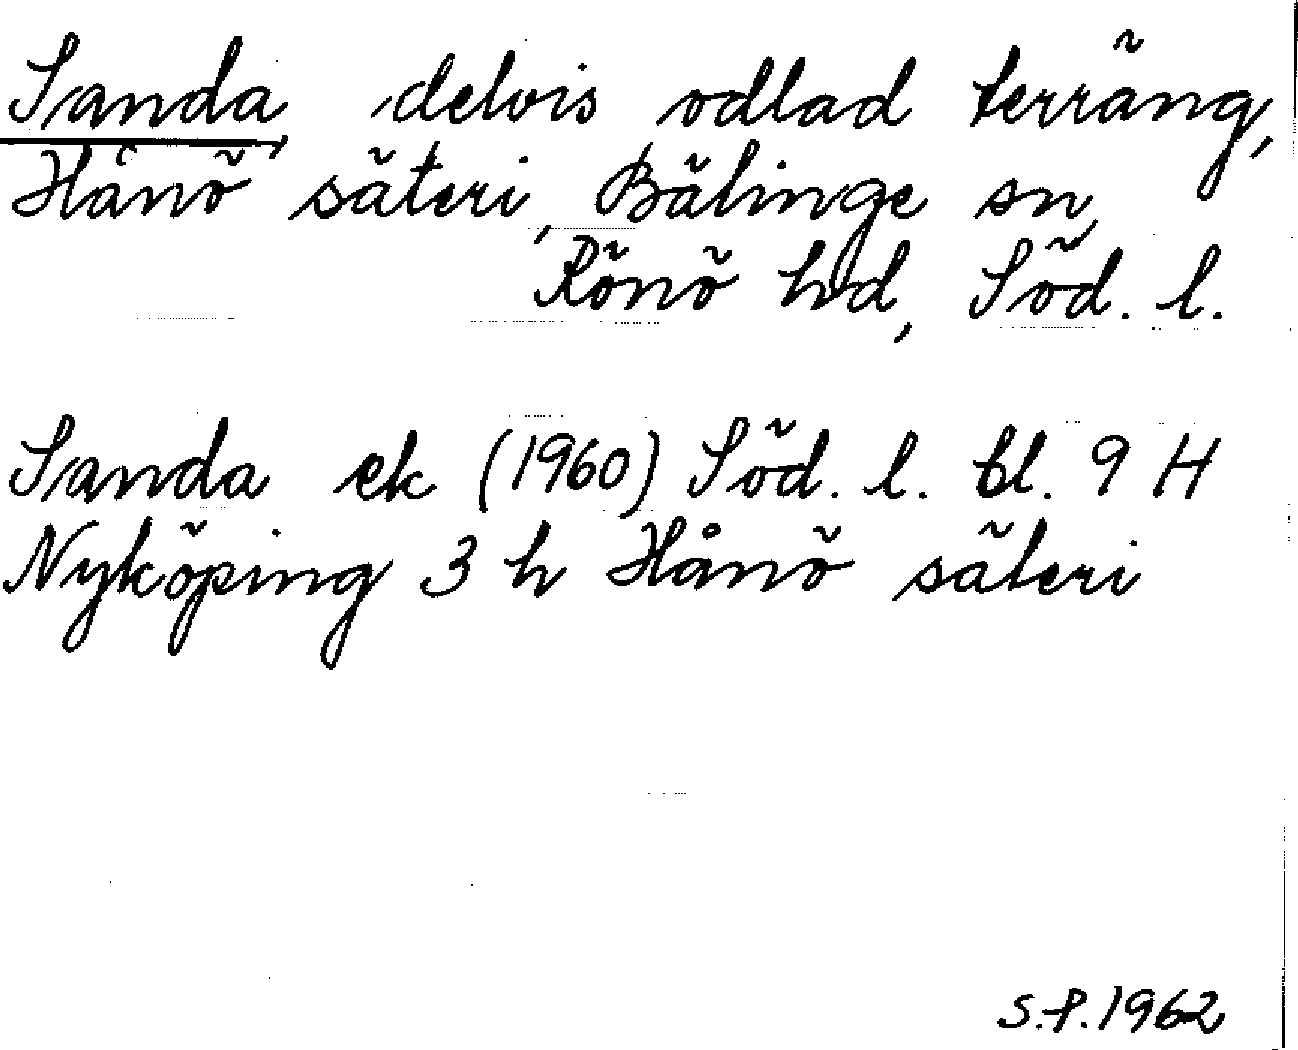 Sanda, delvis odlad terräng,
Hånö säteri, Bälinge sn,
Rönö hd, Söd. l.
Sanda ek (1960) Söd. l. bl. 9 H
Nyköping 3 h Hånö säteri
S.P. 1962